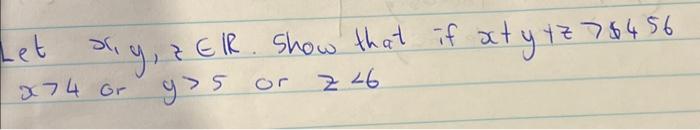 Let x, y, z ∈ ℝ. Show that if x+y+z > 456
x>4 or y>5 or z<6